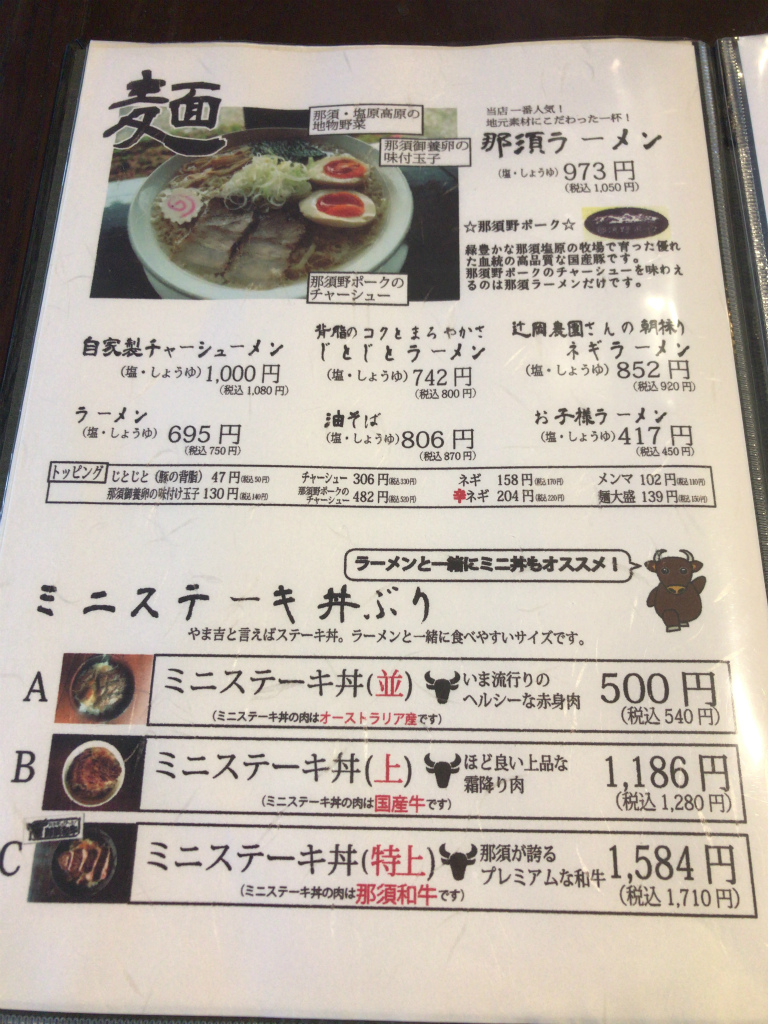 麺
那須・塩原高原の
地物野菜
那須御養卵の
味付玉子
那須野ポークの
チャーシュー
当店一番人気！
地元素材にこだわった一杯！
那須ラーメン
(塩・しょうゆ) 973円
(税込1,050円)
☆那須野ポーク☆
緑豊かな那須塩原の牧場で育った優れ
た血統の高品質な国産豚です。
那須野ポークのチャーシューを味わえ
るのは那須ラーメンだけです。
自家製チャーシューメン
(塩・しょうゆ) 1,000円
(税込1,080円)
背脂のコクとまろやかさ
じとじとラーメン
(塩・しょうゆ) 742円
(税込800円)
辻岡農園さんの朝採り
ネギラーメン
(塩・しょうゆ) 852円
(税込920円)
ラーメン
(塩・しょうゆ) 695円
(税込750円)
油そば
(塩・しょうゆ) 806円
(税込870円)
お子様ラーメン
(塩・しょうゆ) 417円
(税込450円)
トッピング
じとじと（豚の背脂） 47円(税込50円)
那須御養卵の味付け玉子 130円(税込140円)
チャーシュー 306円(税込330円)
那須野ポークの
チャーシュー 482円(税込520円)
ネギ 158円(税込170円)
辛ネギ 204円(税込220円)
メンマ 102円(税込110円)
麺大盛 139円(税込150円)
ラーメンと一緒にミニ丼もオススメ！
ミニステーキ丼ぶり
やま吉と言えばステーキ丼。ラーメンと一緒に食べやすいサイズです。
A
ミニステーキ丼(並)
(ミニステーキ丼の肉はオーストラリア産です)
いま流行りの
ヘルシーな赤身肉
500円
(税込540円)
B
ミニステーキ丼(上)
(ミニステーキ丼の肉は国産牛です)
ほど良い上品な
霜降り肉
1,186円
(税込1,280円)
C
ミニステーキ丼(特上)
(ミニステーキ丼の肉は那須和牛です)
那須が誇る
プレミアムな和牛
1,584円
(税込1,710円)